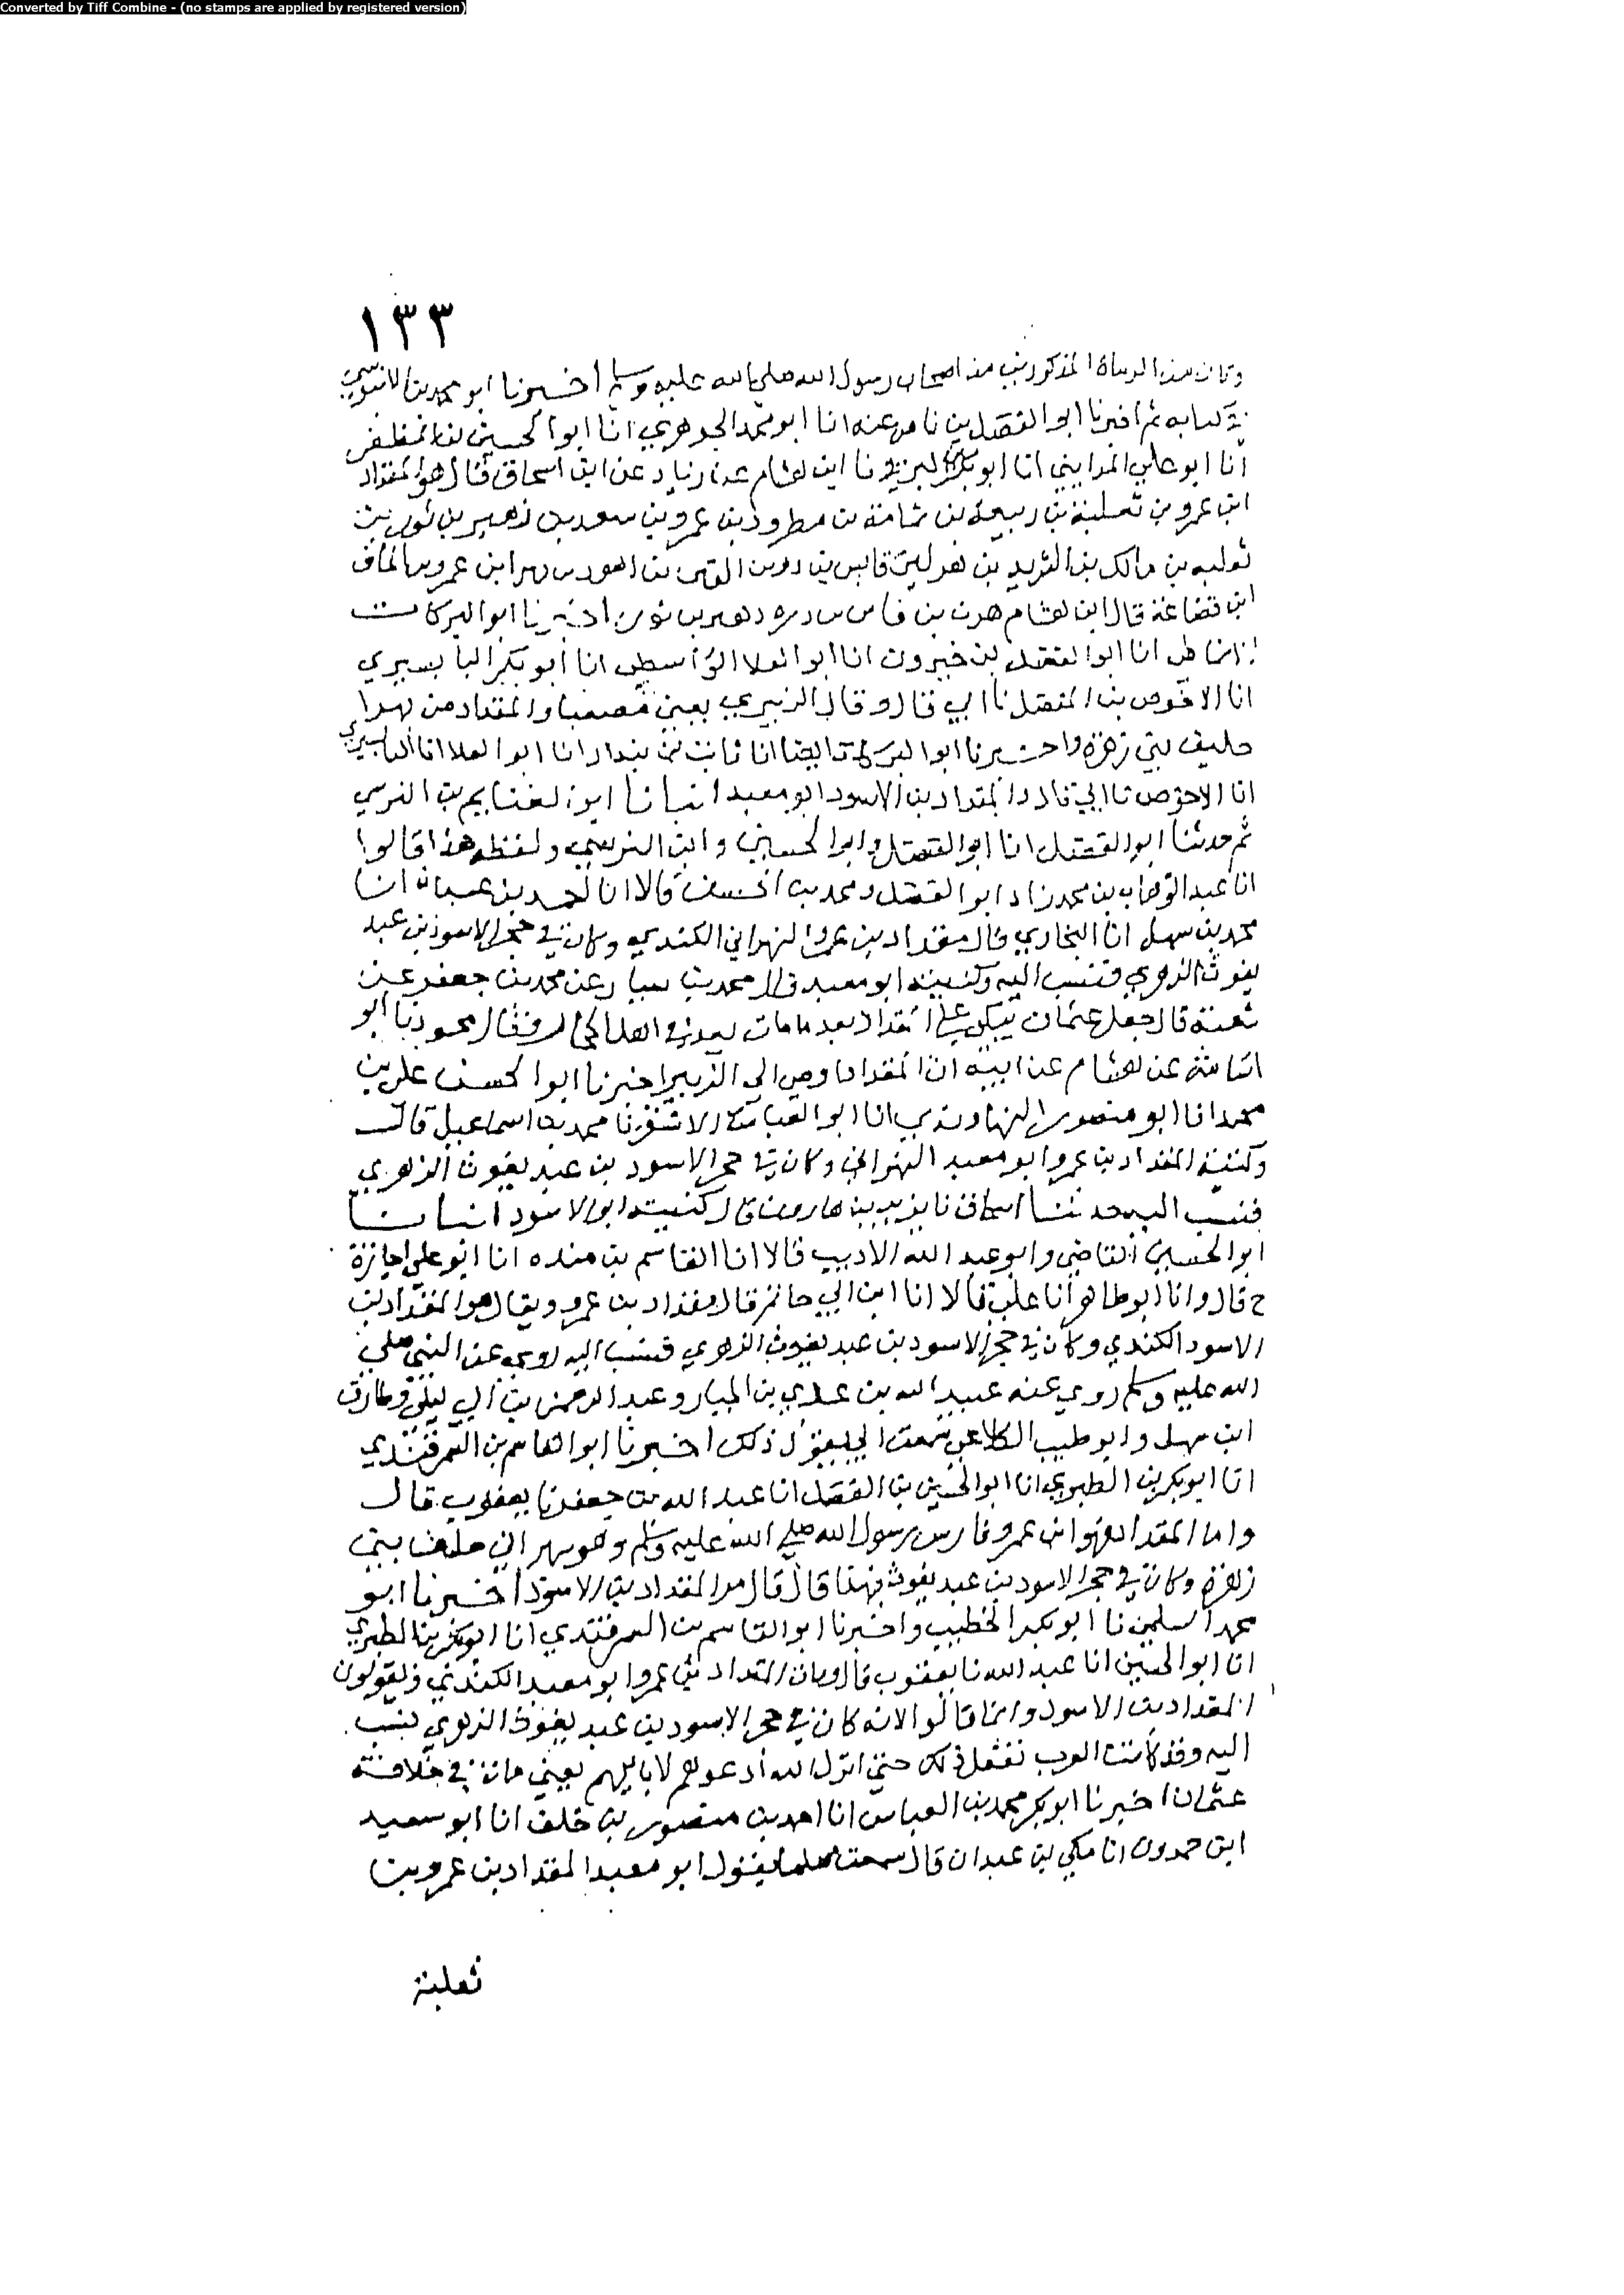 Converted by Tiff Combine - (no stamps are applied by registered version)
١٣٣
وكان من الرماة المذكورين من اصحاب رسول الله صلي الله عليه وسلم اخبرنا ابو محمد بن الابنوسي
في كتابه ثم اخبرنا ابو الفضل بن ناصر عنه انا ابو محمد الجوهري انا ابو الحسين بن المظفر
انا ابو علي المدايني انا ابو بكر بن البرقي نا ابن هشام عن زياد عن ابن اسحاق قال هو المقداد
ابن عمرو بن ثعلبة بن ربيعة بن ثمامة بن مطرود بن عمرو بن سعد بن زهير بن ثور بن
ثعلبه بن مالك بن الشريد بن هزل بن قابس بن دريم بن القين بن اهود بن بهرا بن عمرو بن الحاف
ابن قضاعة قال ابن هشام هزل بن فاس بن دهير بن ثور اخبرنا ابو البركات
الانماطي انا ابو الفضل بن خيرون انا ابو العلا الواسطي انا ابو بكر البابسيري
انا الاحوص بن المفضل نا ابي قال وقال الزبيري يعني مصعبا والمقداد من بهرا
حليف بني زهرة واخبرنا ابو البركات ايضا انا ثابت بن بندار انا ابو العلا انا البابسيري
انا الاحوص نا ابي قال المقداد بن الاسود ابو معبد انبانا ابو الغنايم بن النرسي
ثم حدثنا ابو الفضل انا ابو الفضل وابو الحسين وابن النرسي ولفظه هذا قالوا
انا عبد الوهاب بن محمد زاد ابو الفضل ومحمد بن الحسن قالا انا احمد بن عبدان انا
محمد بن سهل انا البخاري قال مقداد بن عمرو البهراني الكندي وكان في حجر الاسود بن عبد
يغوث الزهري فنسب اليه وكنيته ابو معبد قال محمد بن عن محمد بن جعفر عن
شعبة قال جعل عثمان يبكي علي المقداد بعد ما مات وقال محمود نا ابو
اسامة عن هشام عن ابيه ان المقداد اوصي الي الزبير اخبرنا ابو الحسن علي بن
محمد انا ابو منصور النهاوندي انا ابو العباس انا الاشقر نا محمد بن اسماعيل قال
وكنية المقداد بن عمرو ابو معبد البهراني وكان في حجر الاسود بن عبد يغوث الزهري
فنسب اليه حدثنا اسحاق نا يزيد بن هارون قال كنيته ابو الاسود انبانا
ابو الحسين القاضي وابو عبد الله الاديب قالا انا القاسم بن منده انا ابو علي اجازة
ح قال وانا ابو طاهر انا علي قالا انا ابن ابي حاتم قال مقداد بن عمرو ويقال هو المقداد بن
الاسود الكندي وكان في حجر الاسود بن عبد يغوث الزهري فنسب اليه روي عن النبي صلي
الله عليه وسلم روي عنه عبيد الله بن عدي بن الخيار وعبد الرحمن بن ابي ليلي وطارق
ابن سهل وابو طيب الكلاعي سمعت ابي يقول ذلك اخبرنا ابو القاسم بن السمرقندي
انا ابو بكر بن الطبري انا ابو الحسين بن الفضل انا عبد الله بن جعفر نا يعقوب قال
واما المقداد فهو ابن عمرو فارس رسول الله صلي الله عليه وسلم وهو بهراني حليف بني
زهرة وكان في حجر الاسود بن عبد يغوث قال المقداد بن الاسود اخبرنا ابو
محمد السلمي نا ابو بكر الخطيب واخبرنا ابو القاسم بن السمرقندي انا ابو بكر بن الطبري
انا ابو الحسين انا عبد الله نا يعقوب قال وكان المقداد بن عمرو ابو معبد الكندي ويقولون
المقداد بن الاسود وانما قالوا لانه كان في حجر الاسود بن عبد يغوث الزهري ينسب
اليه وقد كانت العرب تفعل ذلك حتي انزل الله ادعوهم لابايهم يعني مات في خلافة
عثمان اخبرنا ابو بكر محمد بن العباس انا احمد بن منصور بن خلف انا ابو سعيد
ابن حمدون انا مكي بن عبدان قال سمعت مسلما يقول ابو معبد المقداد بن عمرو بن
ثعلبة